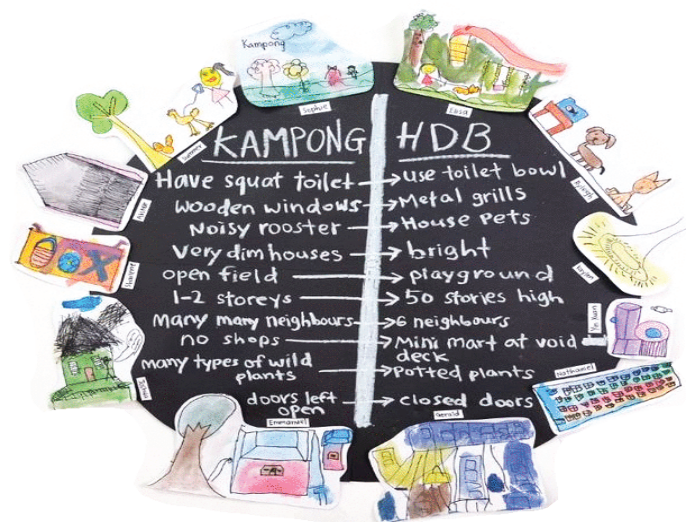 Kampong
Sophie
Lissa
KAMPONG
HDB
Have squat toilet
use toilet bowl
wooden windows
Metal grills
Noisy rooster
House Pets
very dim houses
bright
open field
playground
1-2 storeys
50 stories high
Many many neighbours
6 neighbours
no shops
Mini mart at void
deck
many types of wild
plants
Potted plants
doors left
open
closed doors
Ye Xuan
Nathaniel
Emmanuel
Gerald